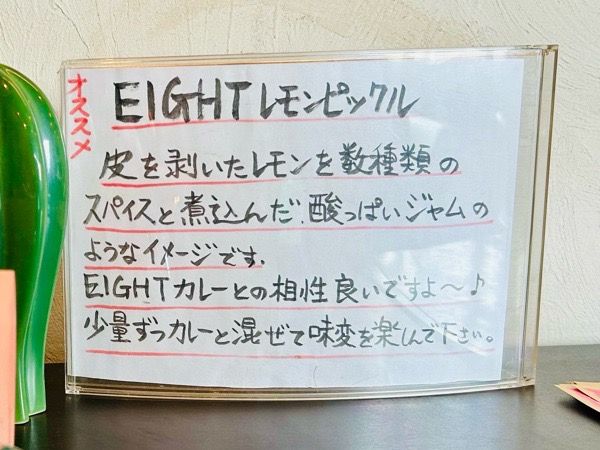 オススメ
EIGHTレモンピックル
皮を剥いたレモンを数種類の
スパイスと煮込んだ、酸っぱいジャムの
ようなイメージです。
EIGHTカレーとの相性良いですよ〜♪
少量ずつカレーと混ぜて味変を楽しんで下さい。